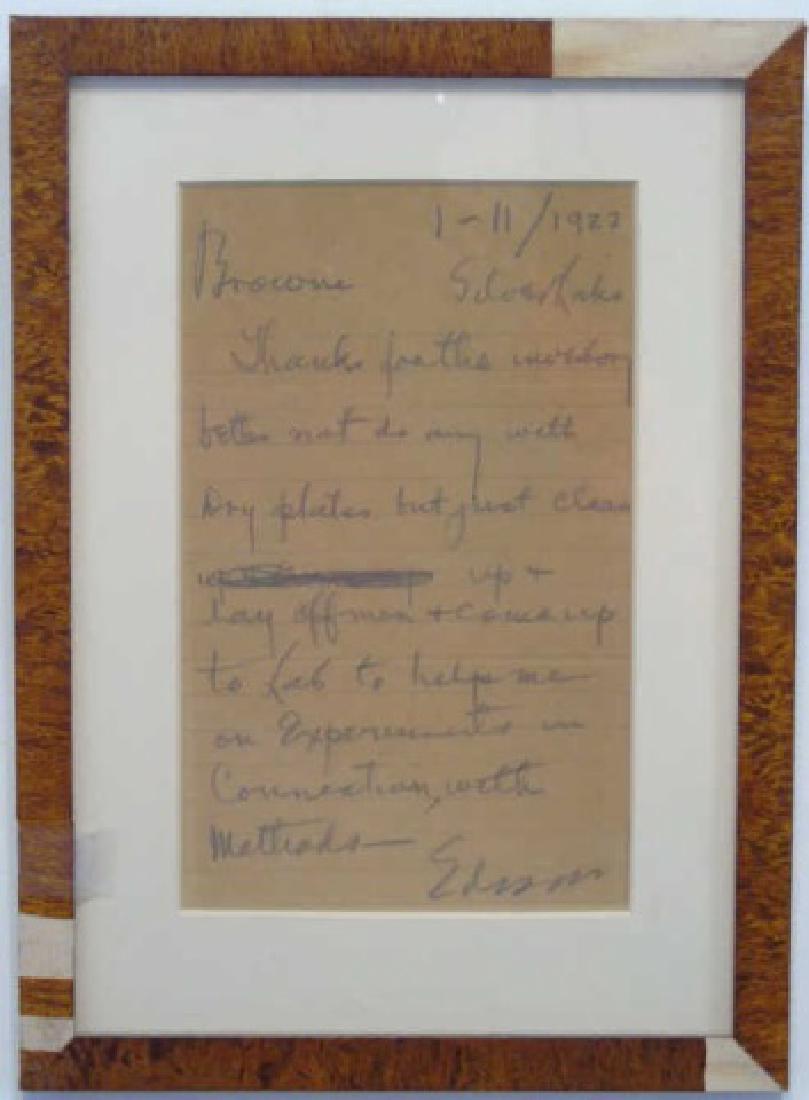 1-11/1922
Browne Silver Lake
Thanks for the inventory
better not do any with
Dry plates but just clean
up +
lay off men + come up
to Lab to help me
on Experiments in
Connection, with
Methods—
Edison